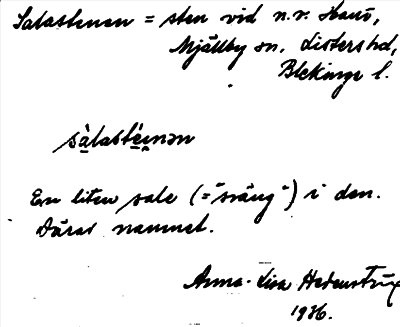 Salastenen = sten vid n.v. Hanö,
Mjällby sn. Listers hd,
Blekinge l.
sàlastéinən
En liten sale (="sväng") i den.
Därav namnet.
Anna-Lisa Hedenström
1936.